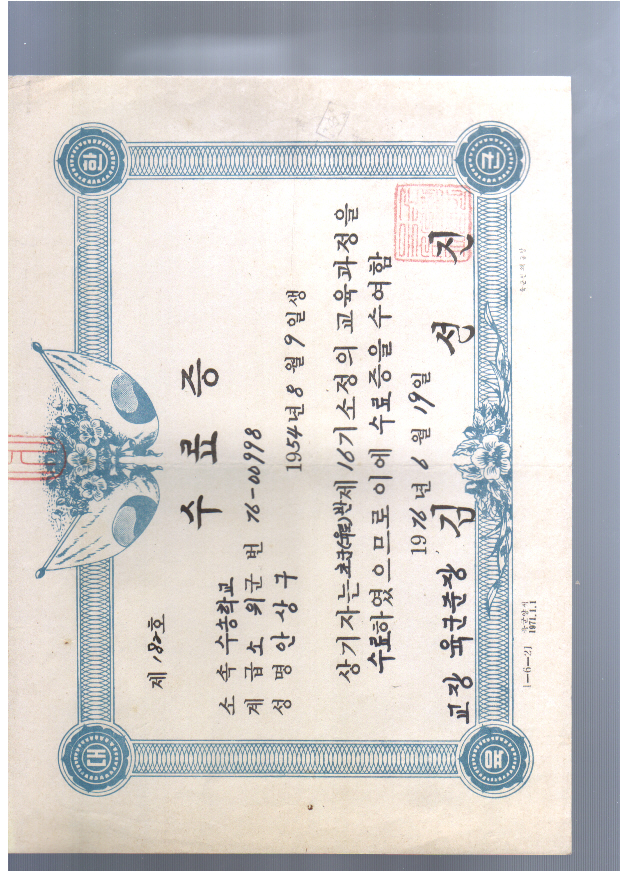 대 한
제 182호
수료증
소속 수송학교
계급 소위 군번 76-00998
성명 안상구
1954년 8월 9일생
상기자는 초군(유로)반 제 16기 소정의 교육과정을
수료하였으므로 이에 수료증을 수여함
1976년 6월 19일
교장 육군준장 김선진
육 군
1-6-21 육군양식
1971.1.1